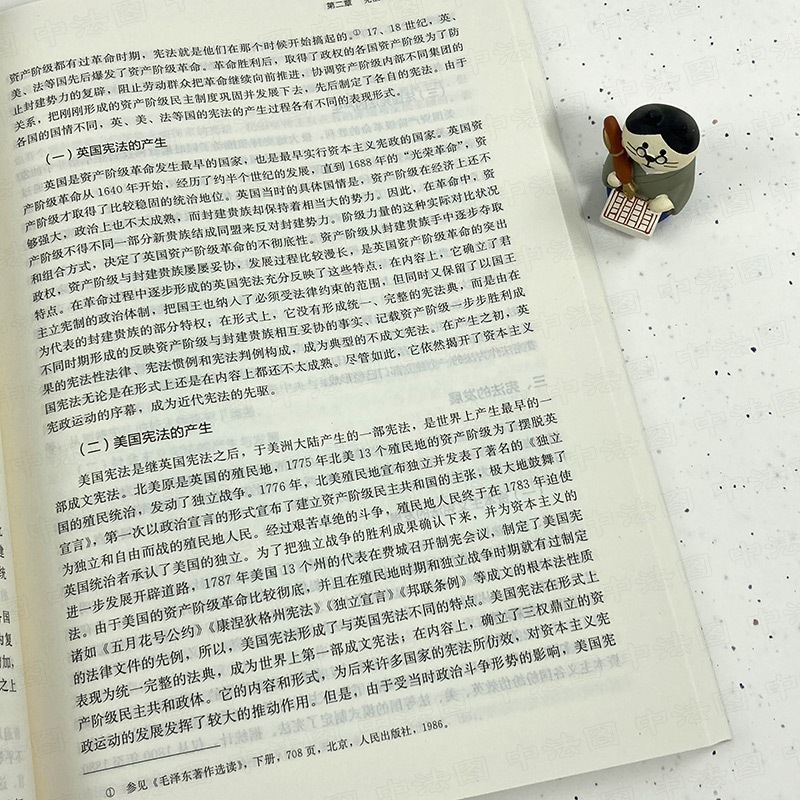 第二章
资产阶级都有过革命时期，宪法就是他们在那个时候开始搞起的。① 17、18 世纪，英、
美、法等国先后爆发了资产阶级革命。革命胜利后，取得了政权的各国资产阶级为了防
止封建势力的复辟，阻止劳动群众把革命继续向前推进，协调资产阶级内部不同集团的
关系，把刚刚形成的资产阶级民主制度巩固并发展下去，先后制定了各自的宪法。由于
各国的国情不同，英、美、法等国的宪法的产生过程各有不同的表现形式。
（一）英国宪法的产生
英国是资产阶级革命发生最早的国家，也是最早实行资本主义宪政的国家。英国资
产阶级革命从 1640 年开始，经历了约半个世纪的发展，直到 1688 年的“光荣革命”，资
产阶级才取得了比较稳固的统治地位。英国当时的具体国情是，资产阶级在经济上还不
够强大，政治上也不太成熟，而封建贵族却保持着相当大的势力。因此，在革命中，资
产阶级不得不同一部分新贵族结成同盟来反对封建势力。阶级力量的这种实际对比状况
和组合方式，决定了英国资产阶级革命的不彻底性。资产阶级从封建贵族手中逐步夺取
政权，资产阶级与封建贵族屡屡妥协，发展过程比较漫长，是英国资产阶级革命的突出
特点。在革命过程中逐步形成的英国宪法充分反映了这些特点：在内容上，它确立了君
主立宪制的政治体制，把国王也纳入了必须受法律约束的范围，但同时又保留了以国王
为代表的封建贵族的部分特权；在形式上，它没有形成统一、完整的宪法典，而是由在
不同时期形成的反映资产阶级与封建贵族相互妥协的事实、记载资产阶级一步步胜利成
果的宪法性法律、宪法惯例和宪法判例构成，成为典型的不成文宪法。在产生之初，英
国宪法无论是在形式上还是在内容上都还不太成熟。尽管如此，它依然揭开了资本主义
宪政运动的序幕，成为近代宪法的先驱。
（二）美国宪法的产生
美国宪法是继英国宪法之后，于美洲大陆产生的一部宪法，是世界上产生最早的一
部成文宪法。北美原是英国的殖民地，1775 年北美 13 个殖民地的资产阶级为了摆脱英
国的殖民统治，发动了独立战争。1776 年，北美殖民地宣布独立并发表了著名的《独立
宣言》，第一次以政治宣言的形式宣布了建立资产阶级民主共和国的主张，极大地鼓舞了
为独立和自由而战的殖民地人民。经过艰苦卓绝的斗争，殖民地人民终于在 1783 年迫使
英国统治者承认了美国的独立。为了把独立战争的胜利成果确认下来，并为资本主义的
进一步发展开辟道路，1787 年美国 13 个州的代表在费城召开制宪会议，制定了美国宪
法。由于美国的资产阶级革命比较彻底，并且在殖民地时期和独立战争时期就有过制定
诸如《五月花号公约》《康涅狄格州宪法》《独立宣言》《邦联条例》等成文的根本法性质
的法律文件的先例，所以，美国宪法形成了与英国宪法不同的特点。美国宪法在形式上
表现为统一完整的法典，成为世界上第一部成文宪法；在内容上，确立了三权鼎立的资
产阶级民主共和政体。它的内容和形式，为后来许多国家的宪法所仿效，对资本主义宪
政运动的发展发挥了较大的推动作用。但是，由于受当时政治斗争形势的影响，美国宪
① 参见《毛泽东著作选读》，下册，708 页，北京，人民出版社，1986。